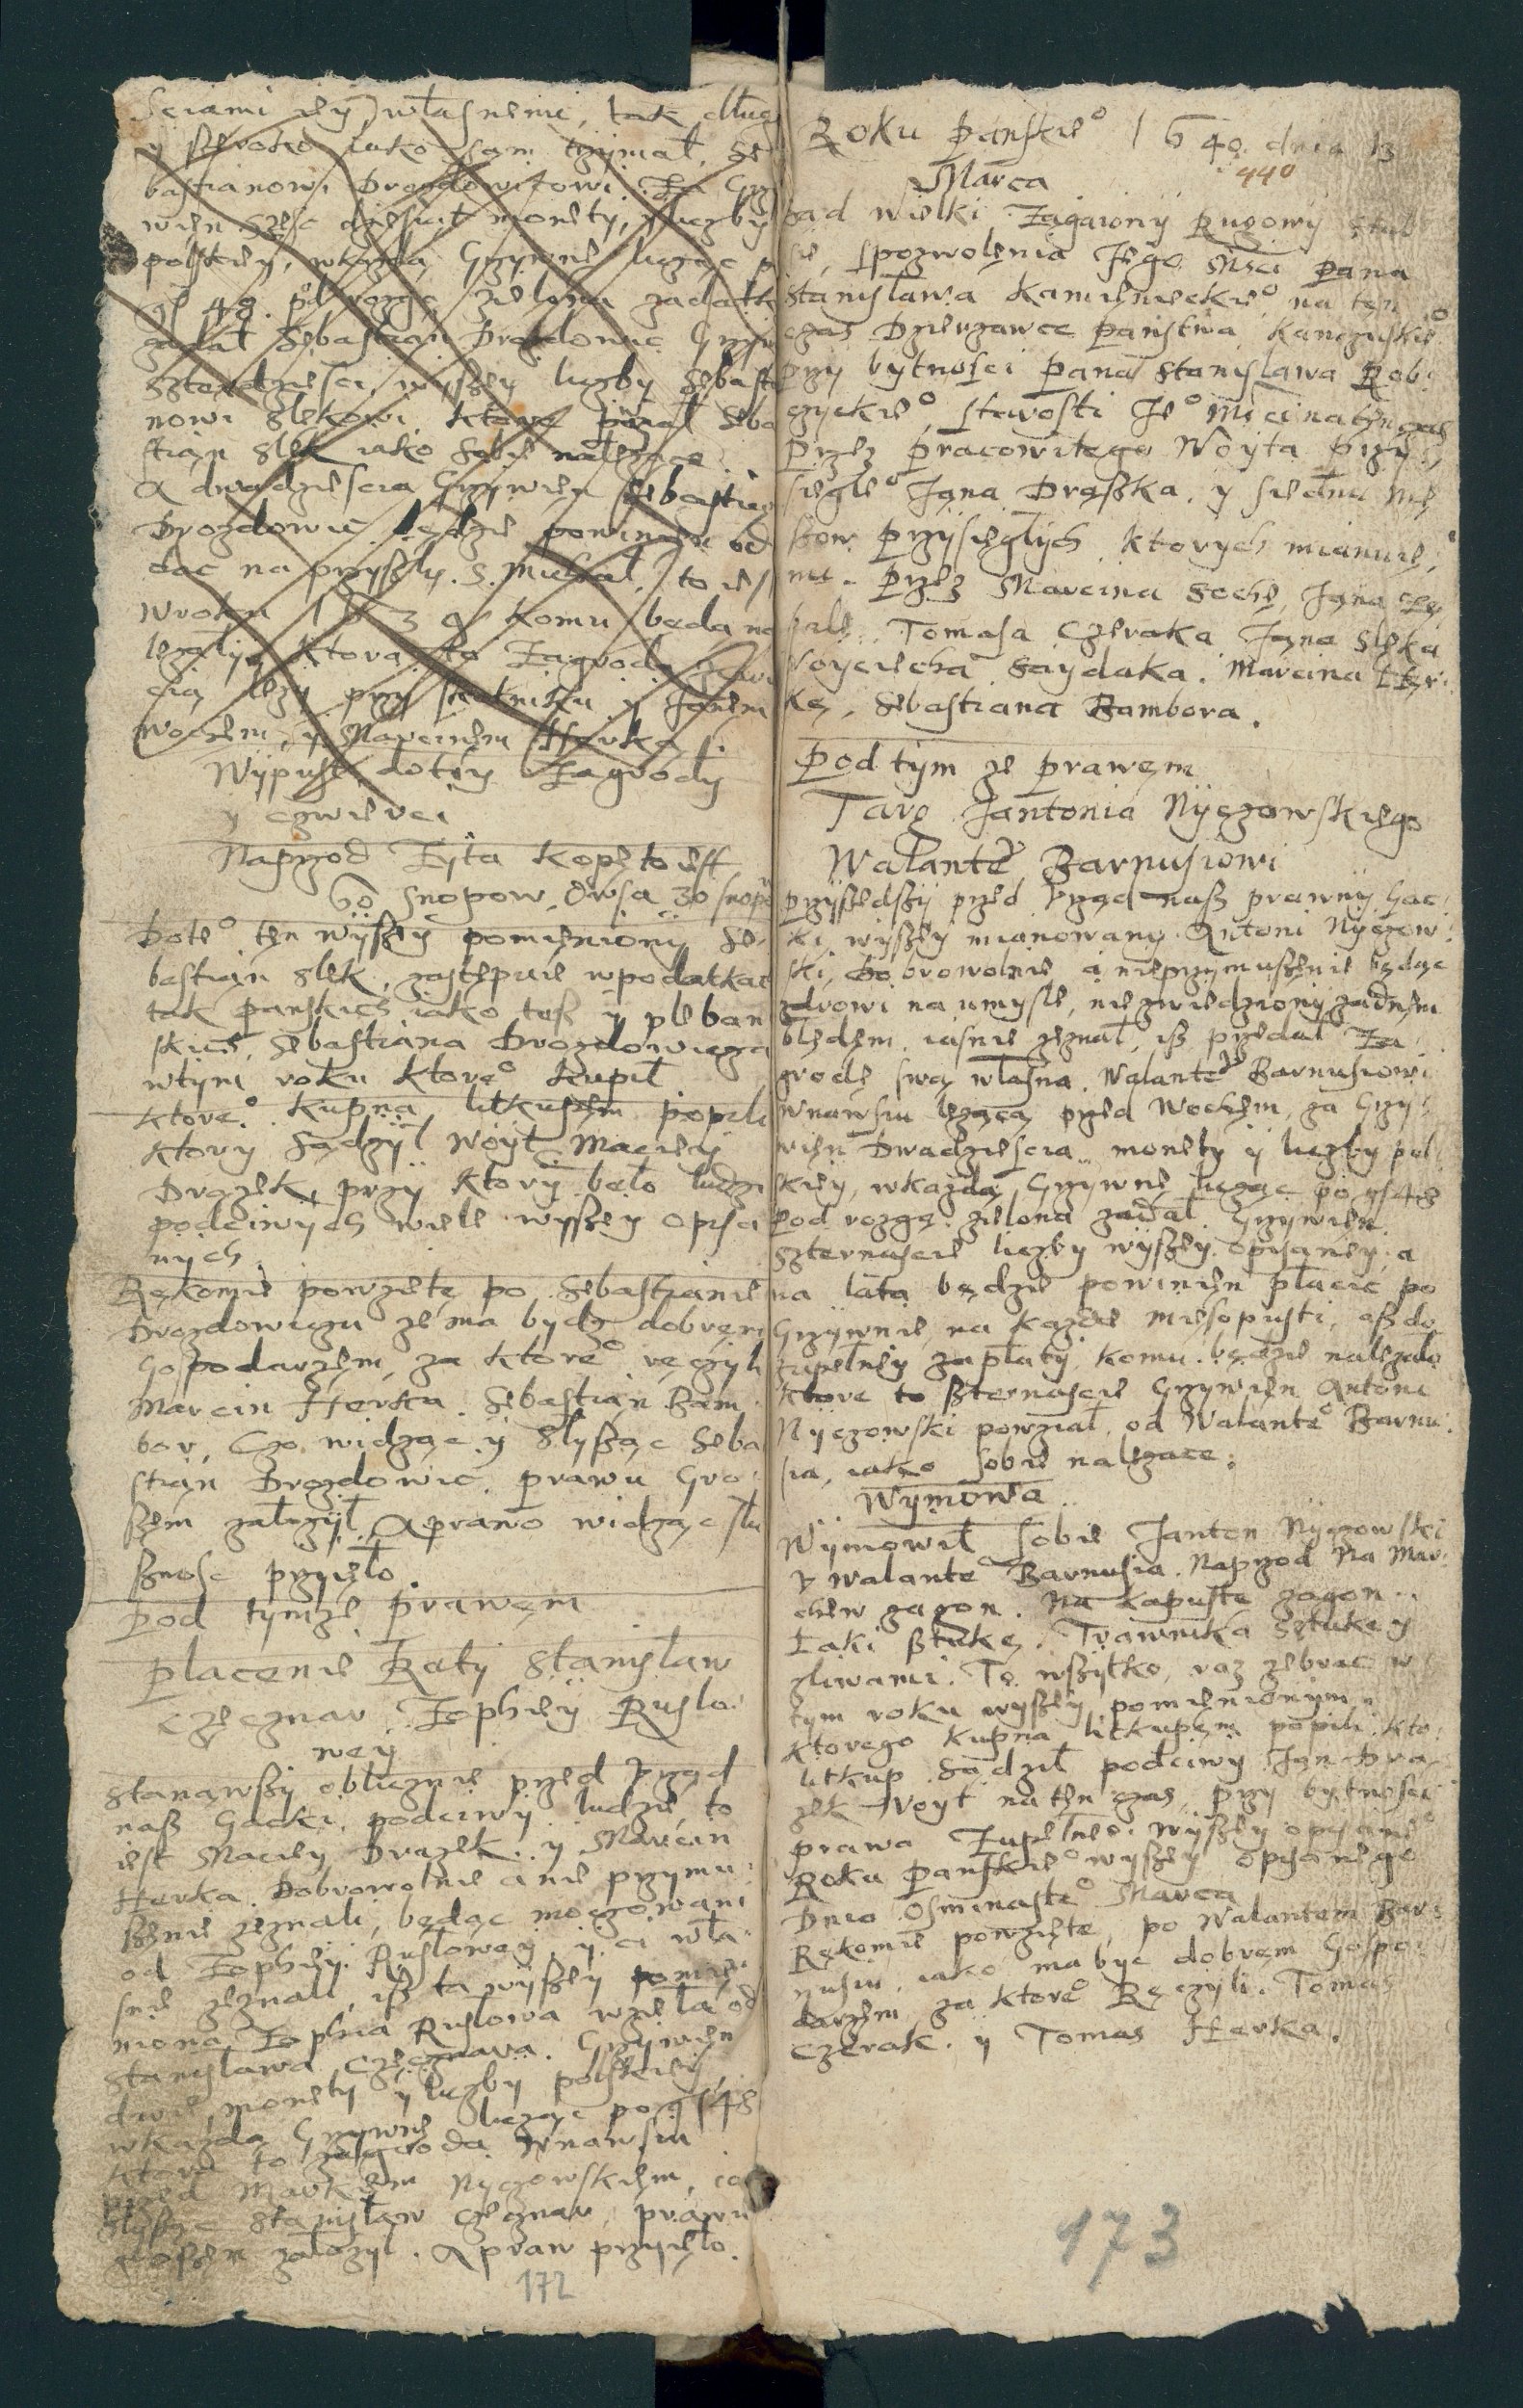 Sciami iey własnemi, tak długo
y szeroko iako sam trzymał, Se
bastianowi Drozdowicowi. Za Grzy
wien szesc dziesiąt monety, y liczby
polskiey, wkażdą Grzywne licząc p
gr 48. pod rozgę zieloną zadatk
zadał Sebastian Drozdowic Grzyw
szterdziesci wyszey liczby Sebasti
nowi Slekowi. Ktore pobrał Seba
stian Slek iako sobie nalezące.
A dwadziescia Grzywien Sebastian
Drozdowic będzie powinien od
dac na przyszły S. Michał, to iest
Wroku 1639 komu będą na
lezały, Ktora to Zagroda
lezy przy y Janem
Wochem, y Marcinem Herką.
Wypust do tey Zagrody
y czwierci
Naprzod Zyta kopę to iest
60 snopow, Owsa 30 snopo
Dote° ten wyszey pomieniony Se
bastian Slek, zastępuie wpodatkac
tak panskich iako tesz y pleban
skich, Sebastiana Drozdowicza
wtym roku ktore° kupił.
Ktore° kupna litkupem popili
Ktory sądzył Woyt Maciey
Drązek, przy ktory beło ludzi
podciwych wiele wyszszey opisa
nych.
Rękomie powzięte po Sebastianie
Drozdowiczu ze ma bydz dobrem
Gospodarzem, za ktore° ręczyli
Marcin Herka. Sebastian Bam
bor, Czo widząc y Słysząc Seba
stian Drozdowic, prawu Gro
szem załozył. A prawo widząc słu
sznosc przyięło.
Pod tymze prawem
Płacenie Raty Stanisław
Czecznar Zophiey Rusło
wey
Stanąwszy oblicznie przed Urząd
nasz Gacki, podciwy ludzie, to
iest Maciey Drązek. y Marcin
Herka. Dobrowolnie a nie przymu
szenie zeznali, będąc moczowani
od Zophiey Rusłowey, y ci wła
snie zeznali, isz ta wyszey pomie
niona Zophia Rusłowa wzieła od
Stanisława Czecznara. Grzywien
dwie, monety y liczby polskiey
wkażdą Grzywnę licząc po gr 48
Ktora to zagroda Wnawsiu
przed Markiem Nyczowskiem, co
Słysząc Stanisław Czecznar, prawu
groszem załozył. A praw przyięło.
172
Roku Panskie° 1640. dnia 13
440
Marca
Sąd Wielki Zagaiony Rugowy
sie, spozwolenia Jego Msci Pana
Stanisława Kamienieckie° na ten
czas Dzierzawce Panstwa Kanczuskie°
przy bytnosci Pana Stanisława Rob
czyckie°, starosti Je° Msci natęn czas
Przez Pracowitego Woyta przy
sięgłe° Jana Draszka. y siedmi mę
szow Przysięgłych. Ktorych mianuie
mi. Przez Marcina Sochę, Jana
Tomasa Czeraka Jana Sleka
Woyciecha Saydaka. Marcina Her
kę, Sebastiana Bambora.
Pod tym ze prawem
Targ Jantonia Nyczowskiego
Walante° Barnusiowi
Przyszedszy przed Urząd nasz prawny Gac
ki, wyszey mianowany Antoni Nyczow
ski, dobrowolnie a nieprzymuszenie będąc
zdrowi na umysle, niezwiedziony zadnem
błędem. iasnie zeznał, isz przedał Za
grodę swą własna. Walante° Barnusiowi
Wnawsiu lezącą przed Wochem, za Grzy
wien Dwadziescia monety y liczby pol
skiey, wkażdą Grzywnę licząc po gr 48
pod rozgę zieloną zadał Grzywien
szternascie liczby wyszey opisaney, a
na lata będzie powinien płacic po
Grzywnie, na kazde miesopusti, aszdo
zupełney zapłaty komu będzie nalezało
Ktore to szternascie Grzywien Antoni
Nyczowski powziął, od Walante° Barnu
sia, iako sobie nalezące.
Wymowa
Wymowił sobie Janton Nyczowski
v walante° Barnusia. Naprzod Na Mar
chew zagon. Na kapustę zagon.
Łąki sztukę. Trawnika sztukę z
sliwami. To wszytko, raz zebrac w
tym roku wyszey pomienionym.
Ktorego kupna litkupem popili. Kto
litkup sądził podciwy Jan Dra
zek Woyt na ten czas, przy bytnosci
prawa Zupełne° wyszey opisane°
Roku Panskie° wyszey opisanego
Dnia Osmnaste° Marca
Rękomie powzięte, po Walantem Bar
nusiu, iako ma byc dobrem Gospo
darzem, za ktore° Ręczyli. Tomas
Czerak. y Tomas Herka.
173